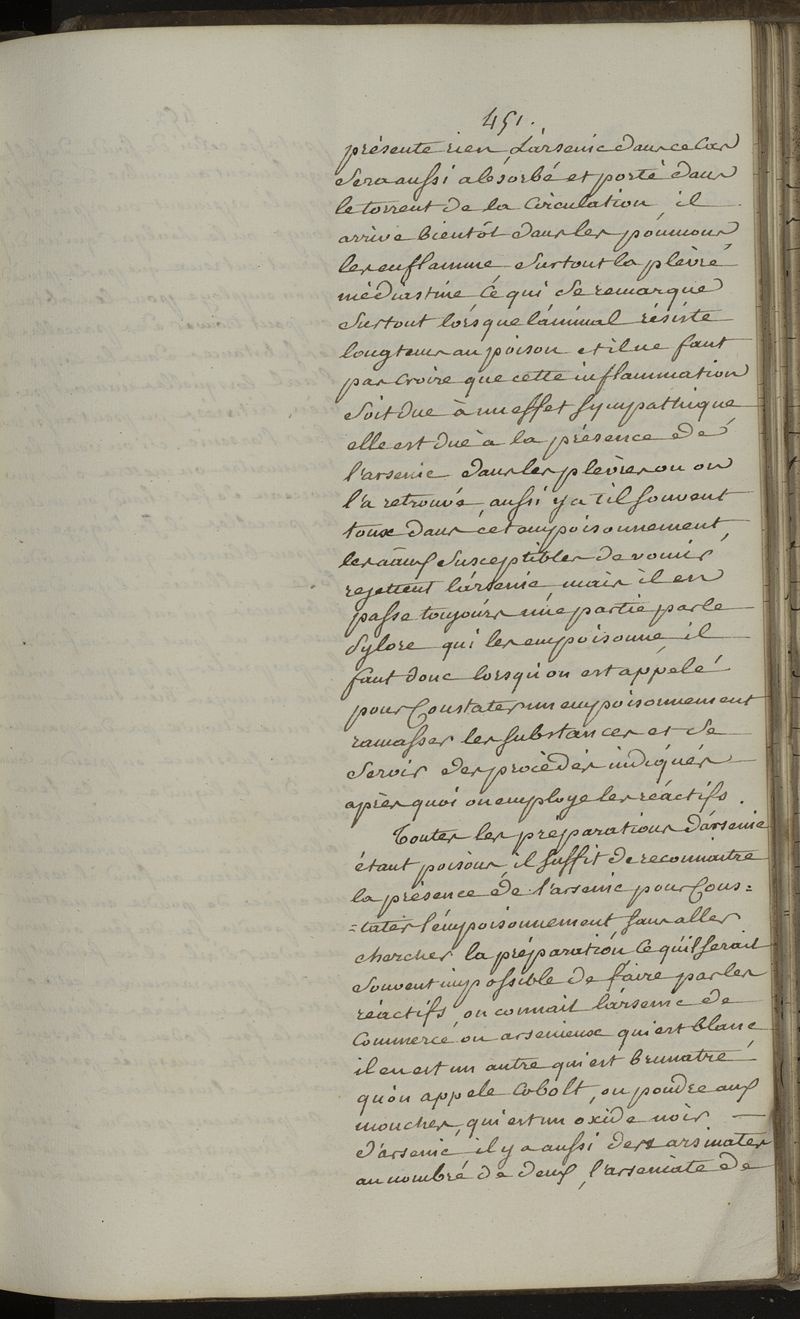 451.
présente rien L'arsenic dans ce Cas
Sera aussi absorbé et porté dans
le torrent de la Circulation, il
arrive bientôt dans les poumons
les enflamme Surtout la plèvre
médiastine Ce qui Se remarque
Surtout lorsque l'animal résiste
longtems au poison et il ne faut
pas Croire que cette inflammation
Soit due à un effet Sympathique
elle est due à la présence de
l'arsenic dans les plèvres ou on
l'a retrouvé, aussi y a til Souvent
toux dans cet empoisonnement
les Susceptibles de vomir,
rejettent l'arsenic mais il en
passe toujours une partie par le
Pylore qui les empoisonne il
faut donc lorsqu'on est appelé
pour Constater un empoisonnement
ramasser les Substances et Se
Servir des procédés indiqués
après quoi on employe les réactifs.
Toutes les préparations d'arsenic
étant poisons, il Suffit de reconnaitre
la présence de l'arsenic pour Cons=
=tater l'empoisonnement Sans aller
chercher la préparation Ce qu'il Serait
Souvent impossible de faire par les
réactifs, on connait l'arsenic de
Commerce ou arsenieux qui est blanc
il en est un autre qui est brunatre
qu'on appele Cobolt, ou poudre aux
mouches, qui est un oxide noir
d'arsenic, il y a aussi des arsinates
au nombre de deux, l'arseniate de